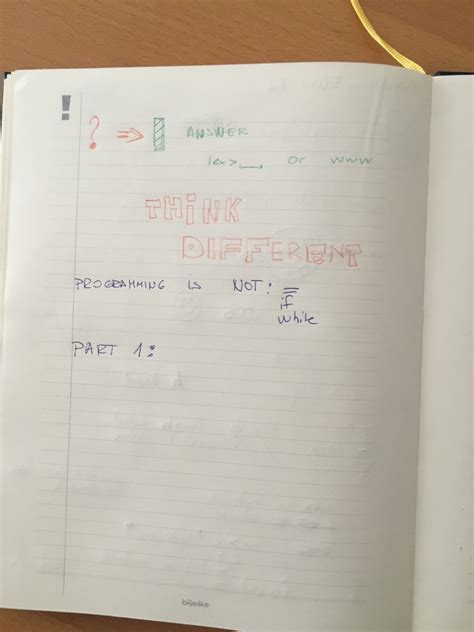 !
? ⇒ ANSWER
or www
THiNK
DIFFERENT
PROGRAMMING is NOT: =
if
while
PART 1:
bilješke